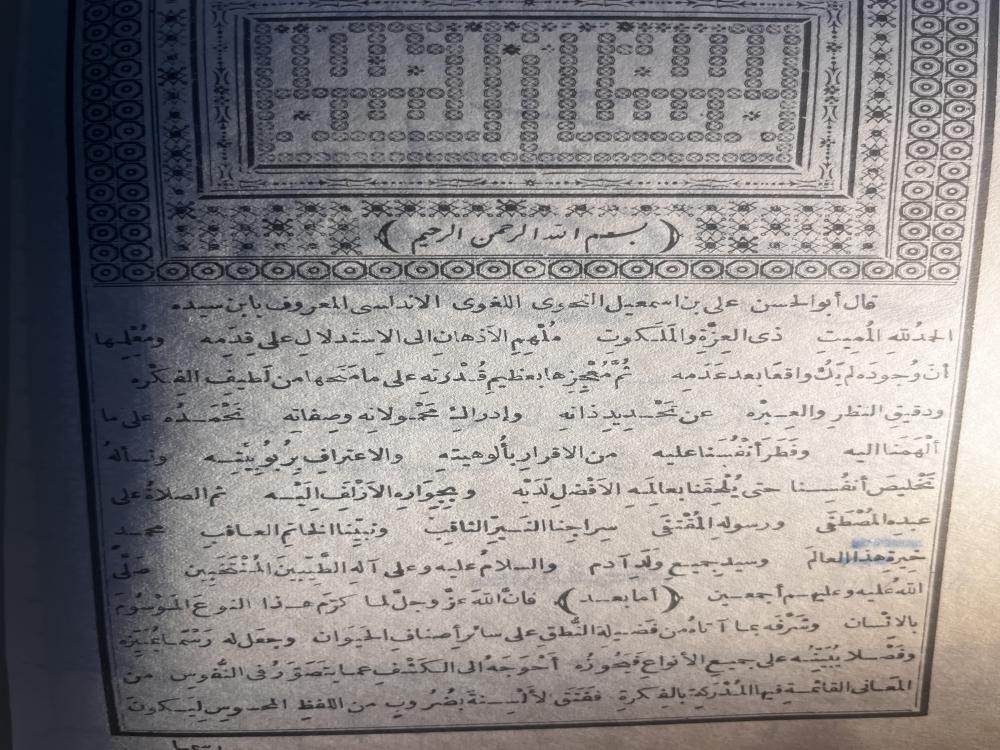 (بسم الله الرحمن الرحيم)
قال أبو الحسن على بن اسمعيل النحوى اللغوى الاندلسى المعروف بابن سيده
الحمدُ لله المُميتِ ذى العِزَّةِ والمَلَكوتِ مُلْهِمِ الأذهانِ الى الاسْتدلالِ على قِدَمِه ومُعْلِمِها
أنّ وُجودَه لم يَكُ واقعًا بعد عَدَمِه ثُمَّ مُعْجِزِها بعظيمِ قُدْرتِه على ما مَنَحها من لَطيفِ الفِكْرِه
ودقيقِ النظر والعِبْره عن تَحْديدِ ذاتِه وإدراكِ مَحْمولاتِه وصِفاتِه نَحْمَدُه على ما
أَلْهَمَنا اليه وفَطَر أنْفُسَنا عليه من الاقرار بأُلوهيتِه والاعترافِ بِرُبُوبِيَّتِه ونسألُه
تَخْليصَ أنفُسِنا حتى يُلْحِقَنا بعالَمِه الأفضلِ لَدَيْه وبجِوارِه الأزْلَفِ الَيْه ثم الصلاةُ على
عبدِه المُصْطَفَى ورسولِه المُقْتَفَى سِراجِنا النَّيِّر الثاقِب ونبِيِّنا الخاتِم العاقبِ محمد
خِيرةِ هذا العالَم وسيدِ جميعِ وَلَدِ آدم والسلامُ عليه وعلى آلِه الطَّيِّبِينَ المُنْتَخَبِين صلَّى
اللهُ عليه وعليهم أجمعين (أما بعد) فانّ اللهَ عزّ وجلّ لمّا كرّم هذا النوعَ المَوْسُومَ
بالانْسان وشَرَّفه بما آتاهُ من فَضيلةِ النُّطقِ على سائرِ أصنافِ الحَيَوان وجعَل له رَسْمًا يُمَيِّزه
وفَصْلا يُبَيِّنُه على جميعِ الأنواعِ فيَحُوزُه أَحْوَجَه الى الكَشْفِ عما يَتصَوَّرُ فى النُّفُوس من
المَعانى القائمةِ فيها المُدْرَكةِ بالفِكرة ففَتَقَ الأَلْسِنةَ بضُروبٍ من اللفظِ المحسوس ليكونَ
رسما